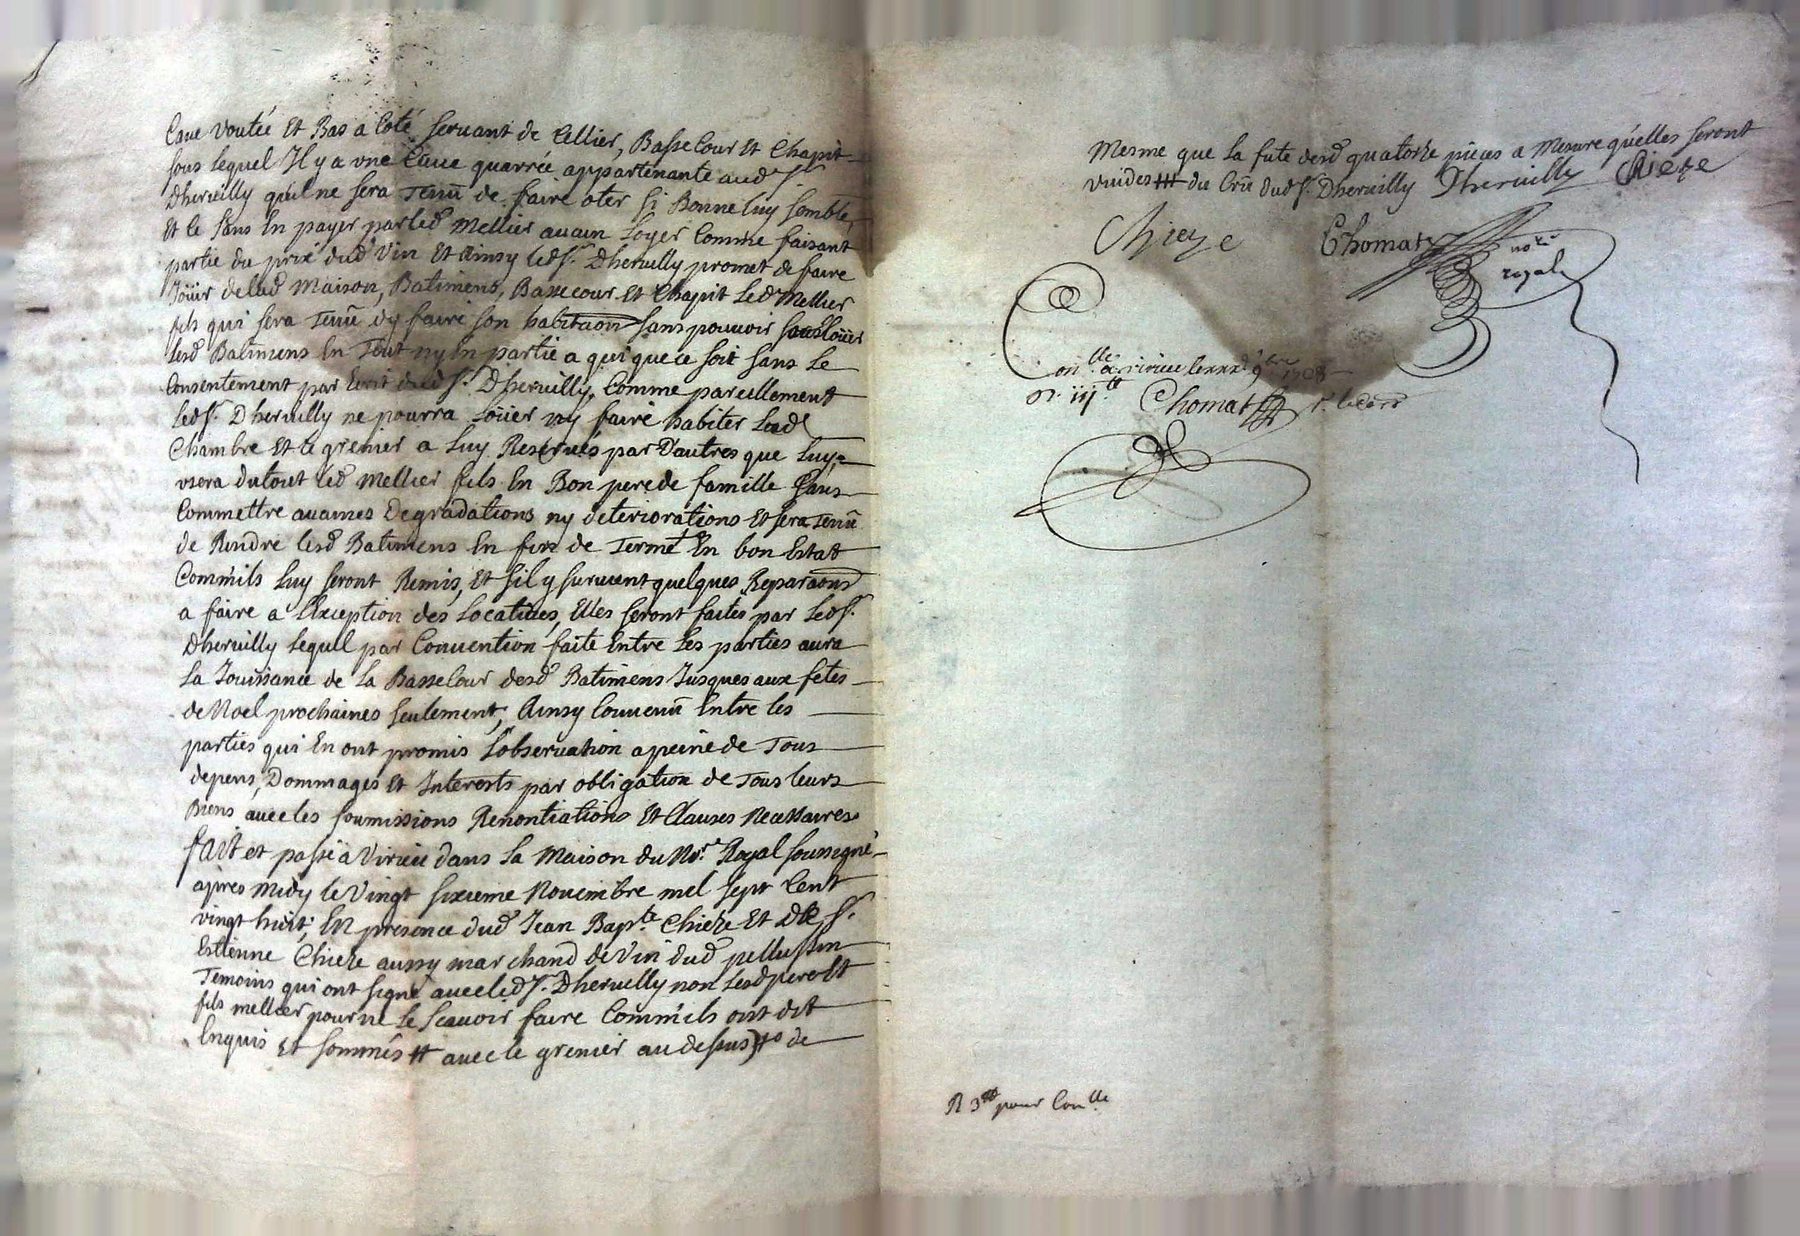 Caue voutée Et Bas a Coté seruant de Cellier, Basse Cour Et Chapit
sous lequel Il y a vne Cuue quarrée appartenante aud. Sr.
Dheruilly quil ne sera Tenü de faire oter si Bonne luy semble,
Et le sans En payer par led. Mellier aucun Loyer Comme faisant
partie du prix dud. Vin Et Ainsy led. Sr. Dheruilly promet de faire
Joüir delad. Maison, Batimens, Basse cour Et Chapit Led. Mellier
fils qui sera Tenü dy faire son habitaon sans pouuoir sous Loüer
lesd. Batimens En Tout ny En partie a qui que ce soit sans Le
Consentement par Ecrit dud. Sr. Dheruilly, Comme pareillement
led. Sr. Dheruilly ne pourra Loüer ny faire habiter Lad.
Chambre Et le grenier a luy Reserués par Dautres que luy,
vsera du tout led. Mellier fils En Bon pere de famille sans
Commettre aucunes Degradations ny deteriorations Et sera Tenü
de Rendre lesd. Batimens En fin de Terme En bon Estat
Comm'ils luy seront Remis, Et sil y suruient quelques Reparaons
a faire a L'Exception des Locatiues, Elles seront faites par Led. Sr.
Dheruilly Lequel par Conuention faite Entre Les parties aura
La Jouissance de La Basse Cour desd. Batimens Jusques aux fetes
de Noel prochaines seulement, Ainsy Conuenü Entre les
parties qui En ont promis L'obseruation a peine de Tous
depens, Dommages Et Interests par obligation de Tous leurs
Biens auec les soumissions Renontiations Et Clauses Necessaires
fait et passé à Virieu dans La Maison du Nore. Royal soussigné
apres midy le Vingt sixieme Nouembre mil sept Cent
vingt huit, En presence dud. Jean Bapte. Chieze Et De Sr.
Estienne Chieze aussy marchand de Vin dud. pellussin
Temoins qui ont signé auec led. Sr. Dheruilly non Lesd. pere et
fils mellier pour ne Le Scauoir faire Comm'ils ont dit
Enquis Et sommés # auec le grenier au dessus # de
Mesme que La fute desd. quatorze pieces a Mesure qu'elles seront
vuides ### du Crü dud. Sr. Dheruilly Dheruilly Chieze
Chieze Chomat nore
royal
Conlle. à virieu le xxx 9bre 1728
R. iij tt Chomat
R 3 tt pour Conlle.